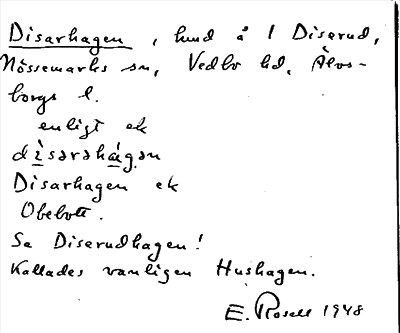 Disarhagen, hmd å 1 Diserud,
Nössemarks sn, Vedbo hd, Älvs-
borgs l.
enligt ek
dìsərəhágən
Disarhagen ek
Obebott.
Se Diserudhagen!
Kallades vanligen Hushagen.
E. Rosell 1948